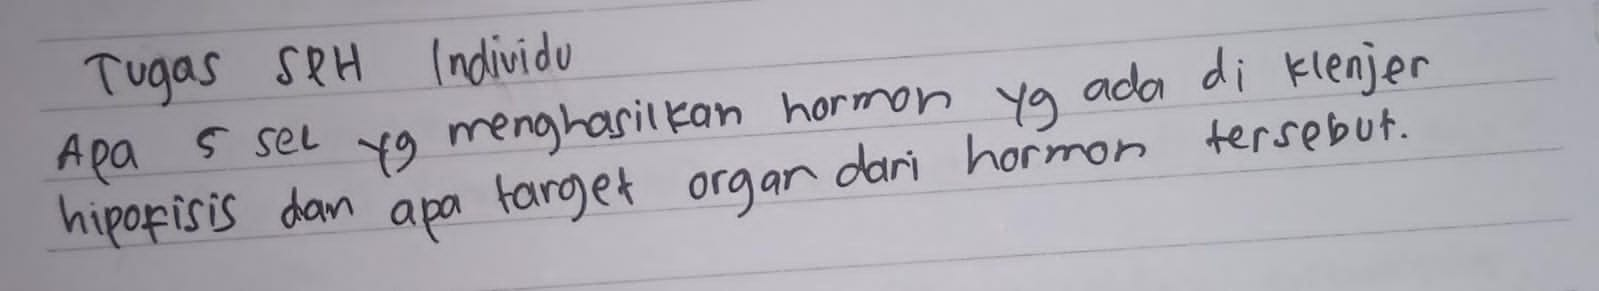 Tugas SPH Individu
Apa 5 sel yg menghasilkan hormon yg ada di klenjer
hipofisis dan apa target organ dari hormon tersebut.